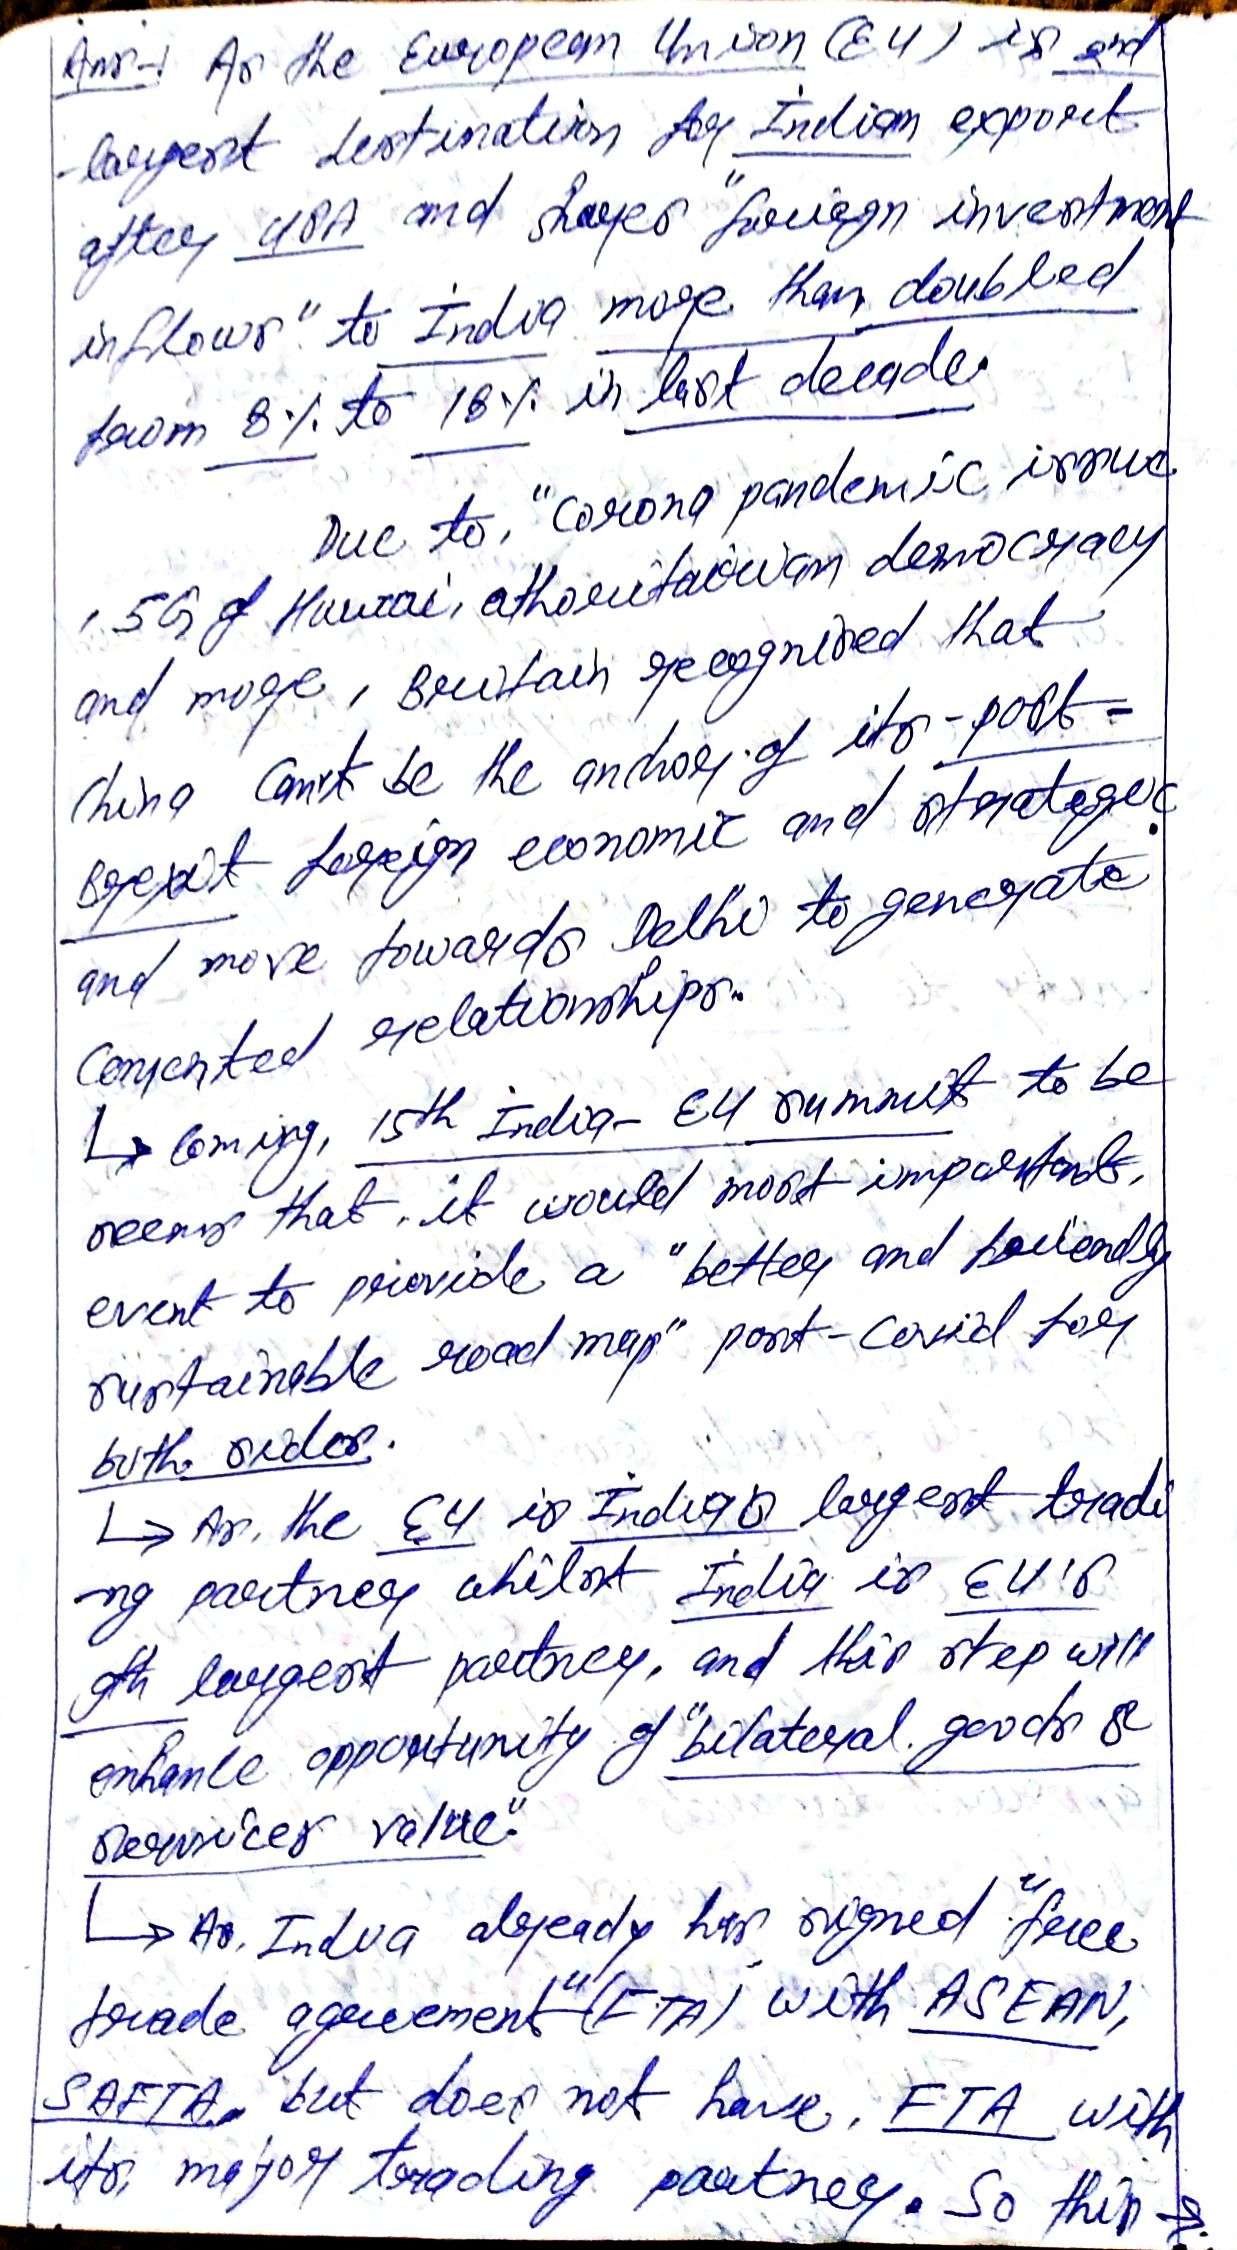 Ans→ As the European Union (EU) is 2nd
-largest destination for Indian export
after USA and shares "foriegn investment
inflows" to India more than doubled
from 8% to 18% in last decade.
Due to, "corona pandemic issue
, 5G of Hawai, athoritarian democracy
and more, Britain recognised that
China can't be the anchor of its - post-
Brexit foreign economic and strategic
and move towards Delhi to generate
relationships.
↳ Coming, 15th India- EU summit to be
seems that, it would most important,
event to provide a "better and friendly
sustainable road map" post-covid for
both sides.
↳ As, the EU is India's largest tradi
-ng partner whilst India is EU's
9th largest partner, and this step will
enhance opportunity of "bilateral goods &
services value".
↳ As, India already has signed "free
trade agreement" (FTA) with ASEAN,
SAFTA, but does not have, FTA with
its, major trading partner. So this →